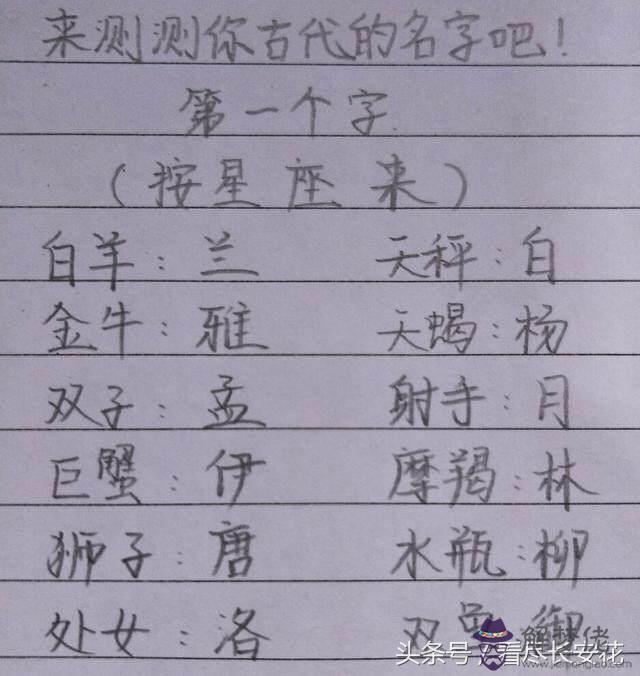 来测测你古代的名字吧！
第一个字
（按星座来）
白羊：兰 天秤：白
金牛：雅 天蝎：杨
双子：孟 射手：月
巨蟹：伊 摩羯：林
狮子：唐 水瓶：柳
处女：洛 双鱼：御
解梦佬
头条号/看尽长安花
www.jiemenglao.com